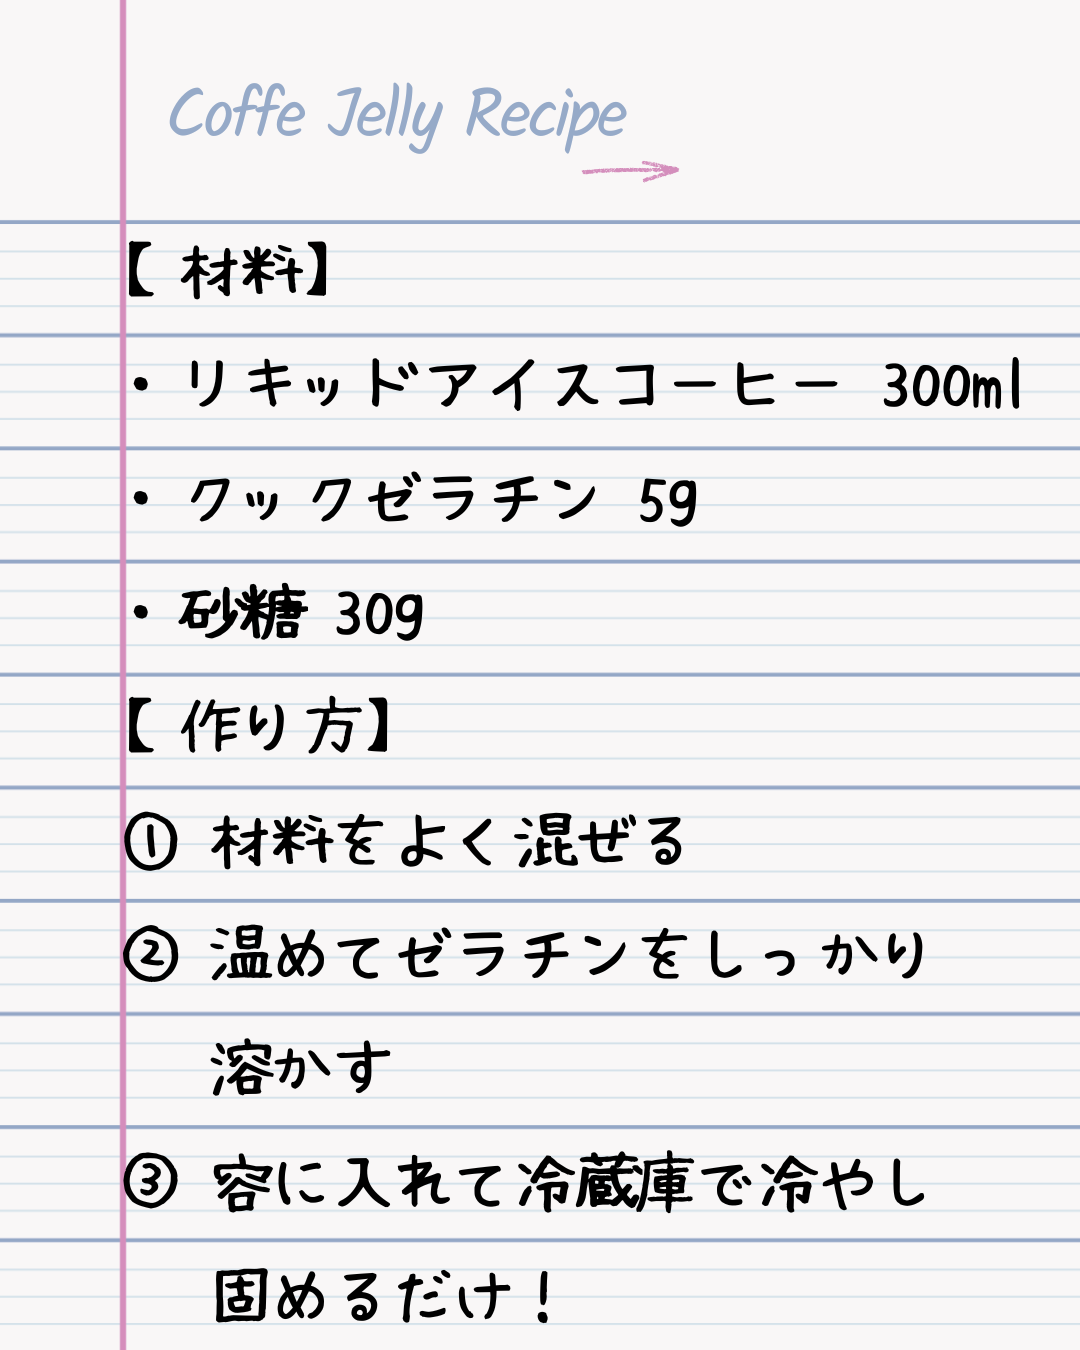 Coffe Jelly Recipe
【材料】
・リキッドアイスコーヒー 300ml
・クックゼラチン 5g
・砂糖 30g
【作り方】
① 材料をよく混ぜる
② 温めてゼラチンをしっかり
溶かす
③ 容に入れて冷蔵庫で冷やし
固めるだけ！